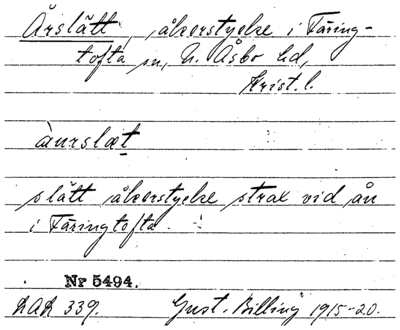 Årslätt, åkerstycke i Färing-
tofta sn, N. Åsbo hd,
Krist. l.
àurslæt
slätt åkerstycke strax vid ån
i Färingtofta.
Nr 5494.
LAL 339. Gust. Billing 1915-20.